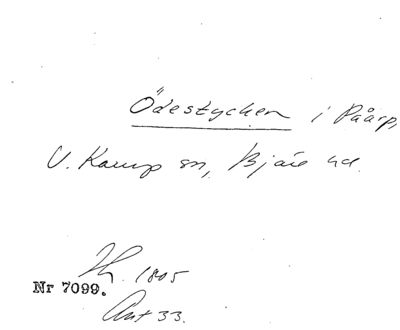 Ödestycken i Påarp,
V. Karup sn, Bjäre hd.
Th. 1805
Nr 7099.
Ant 33.